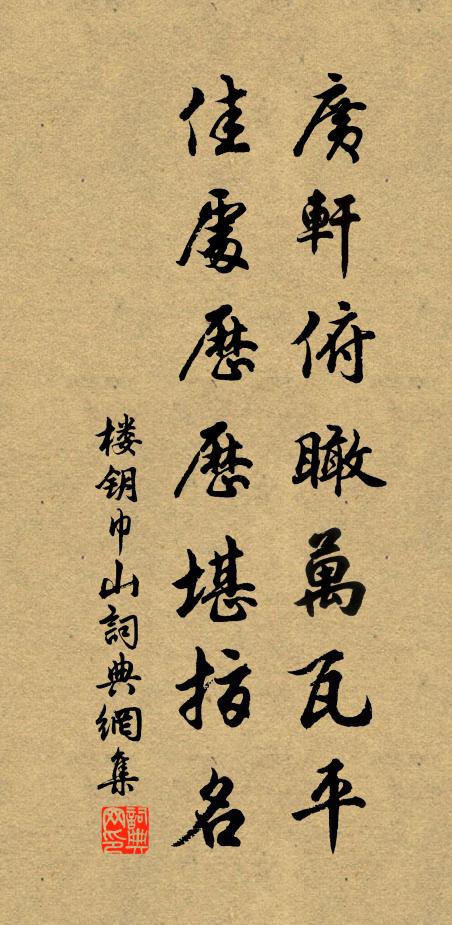 廣軒俯瞰萬瓦平
佳處歷歷堪指名
楼钥巾山詞典網集
詞典网印